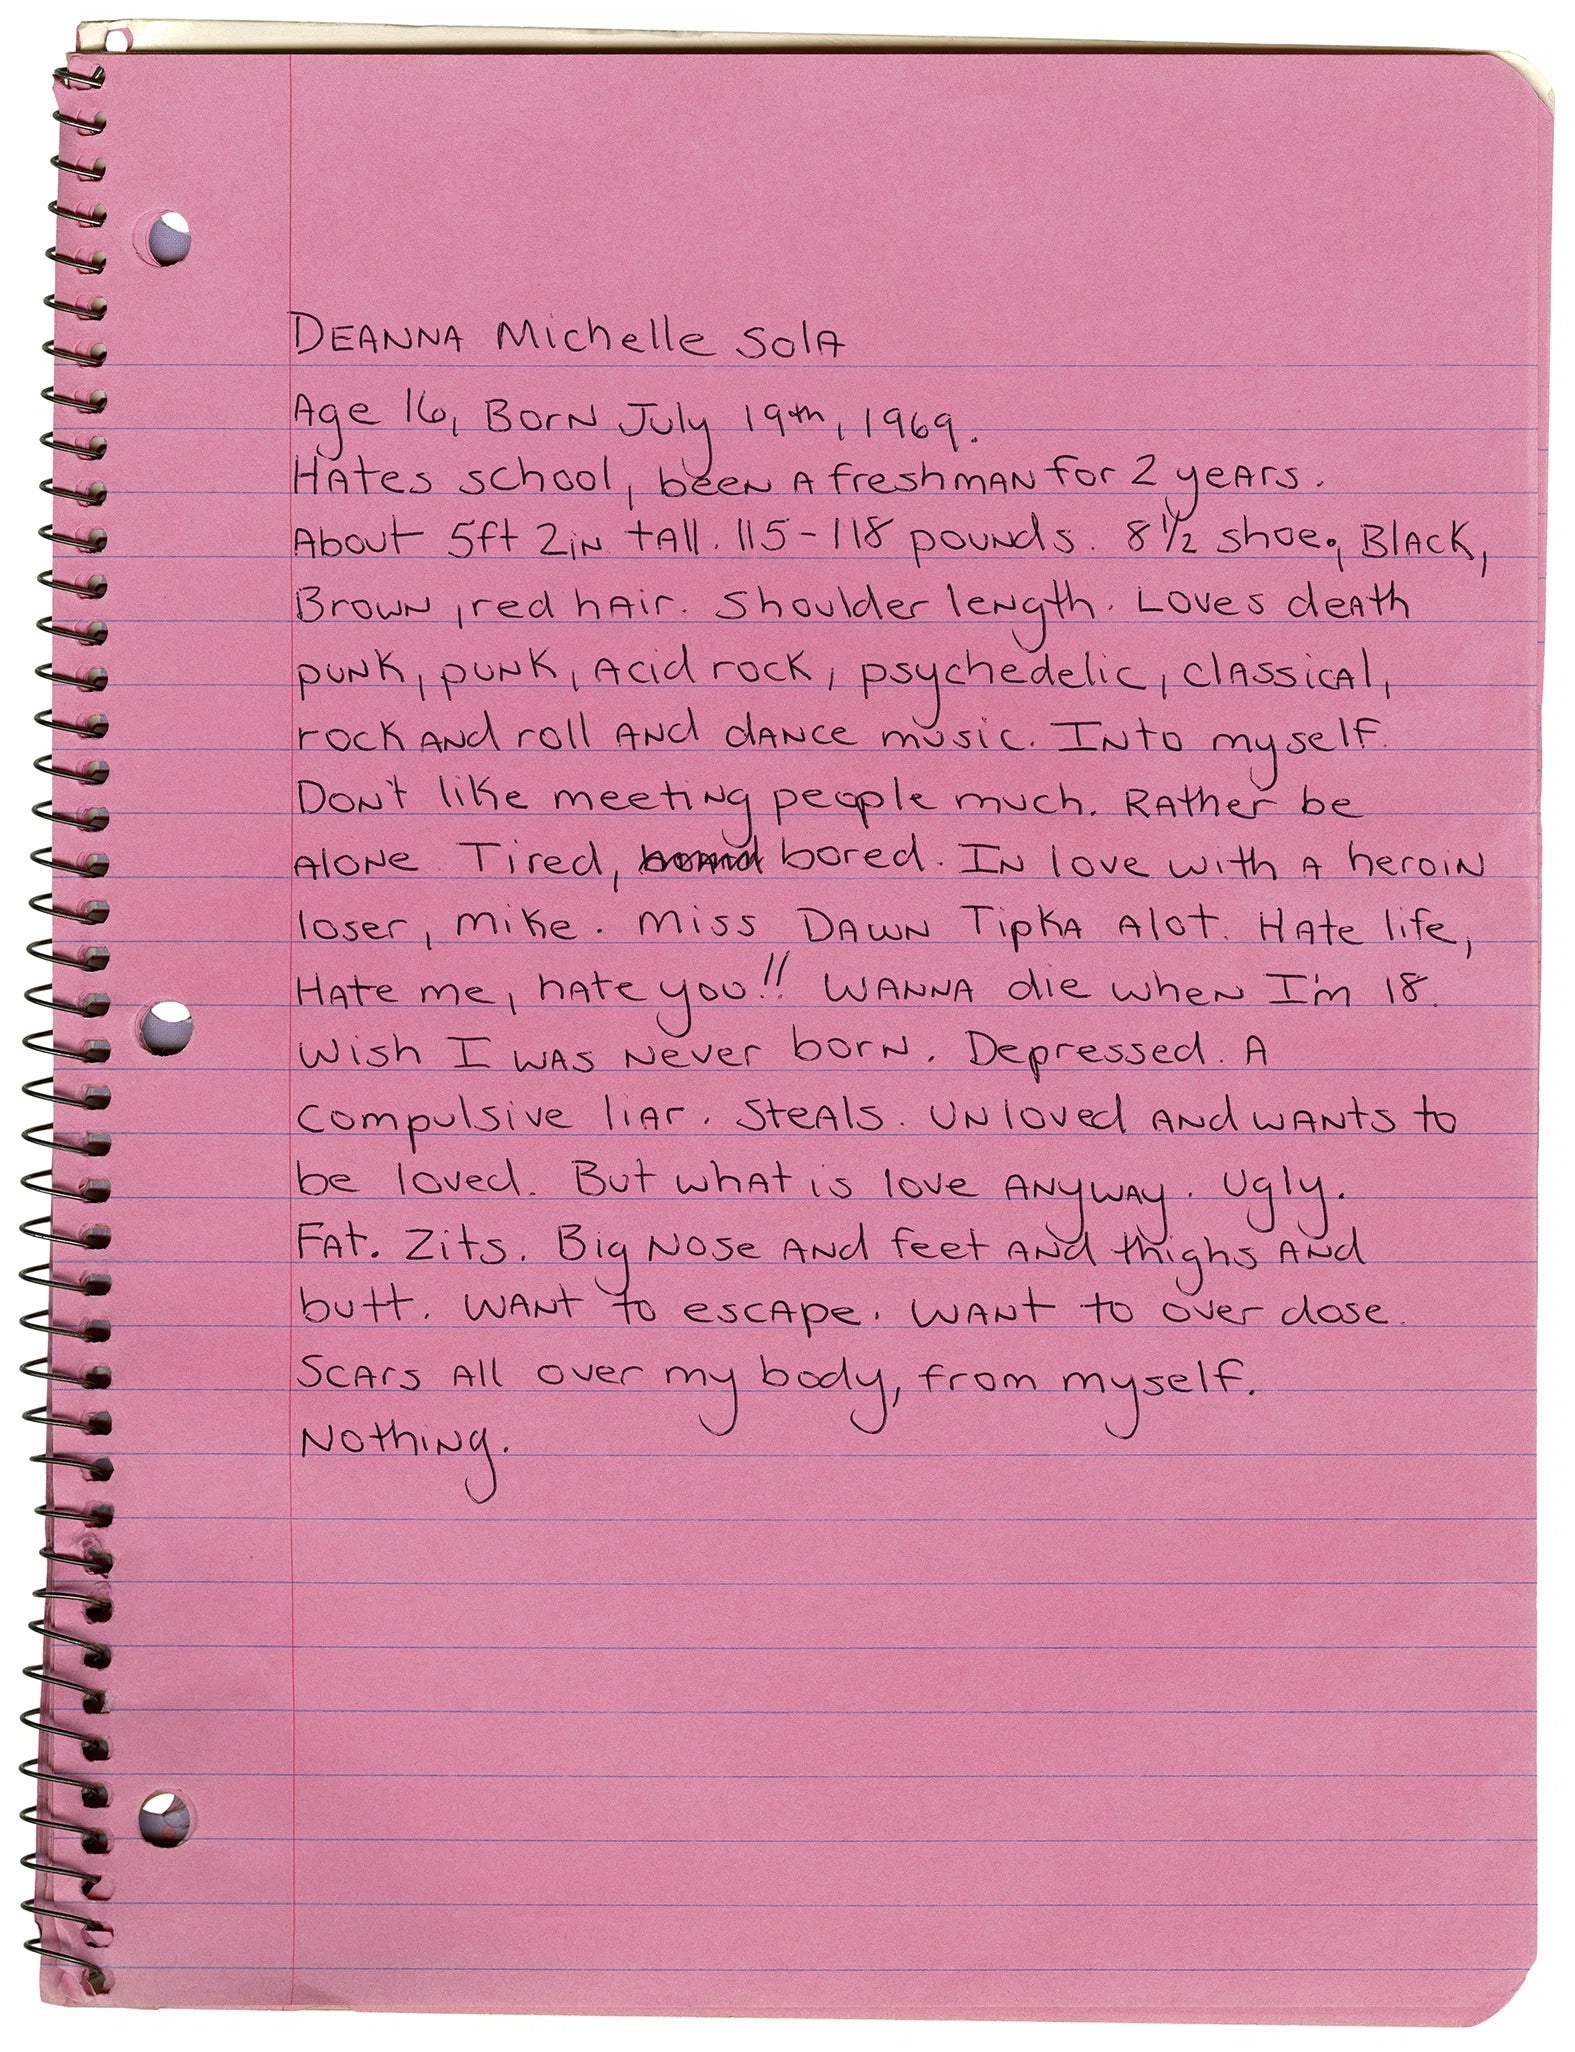 DEANNA Michelle Sola
Age 16, Born July 19th, 1969.
Hates school, been a freshman for 2 years.
About 5ft 2in tall. 115-118 pounds. 8 1/2 shoe., Black,
Brown, red hair. Shoulder length. Loves death
punk, punk, acid rock, psychedelic, classical,
rock and roll and dance music. Into myself.
Don't like meeting people much. Rather be
alone. Tired, bored. In love with a heroin
loser, mike. Miss Dawn Tipka alot. Hate life,
Hate me, hate you!! Wanna die when I'm 18.
Wish I was never born. Depressed. A
compulsive liar. Steals. Unloved and wants to
be loved. But what is love anyway. Ugly.
Fat. Zits. Big nose and feet and thighs and
butt. Want to escape. Want to over dose.
Scars all over my body, from myself.
Nothing.